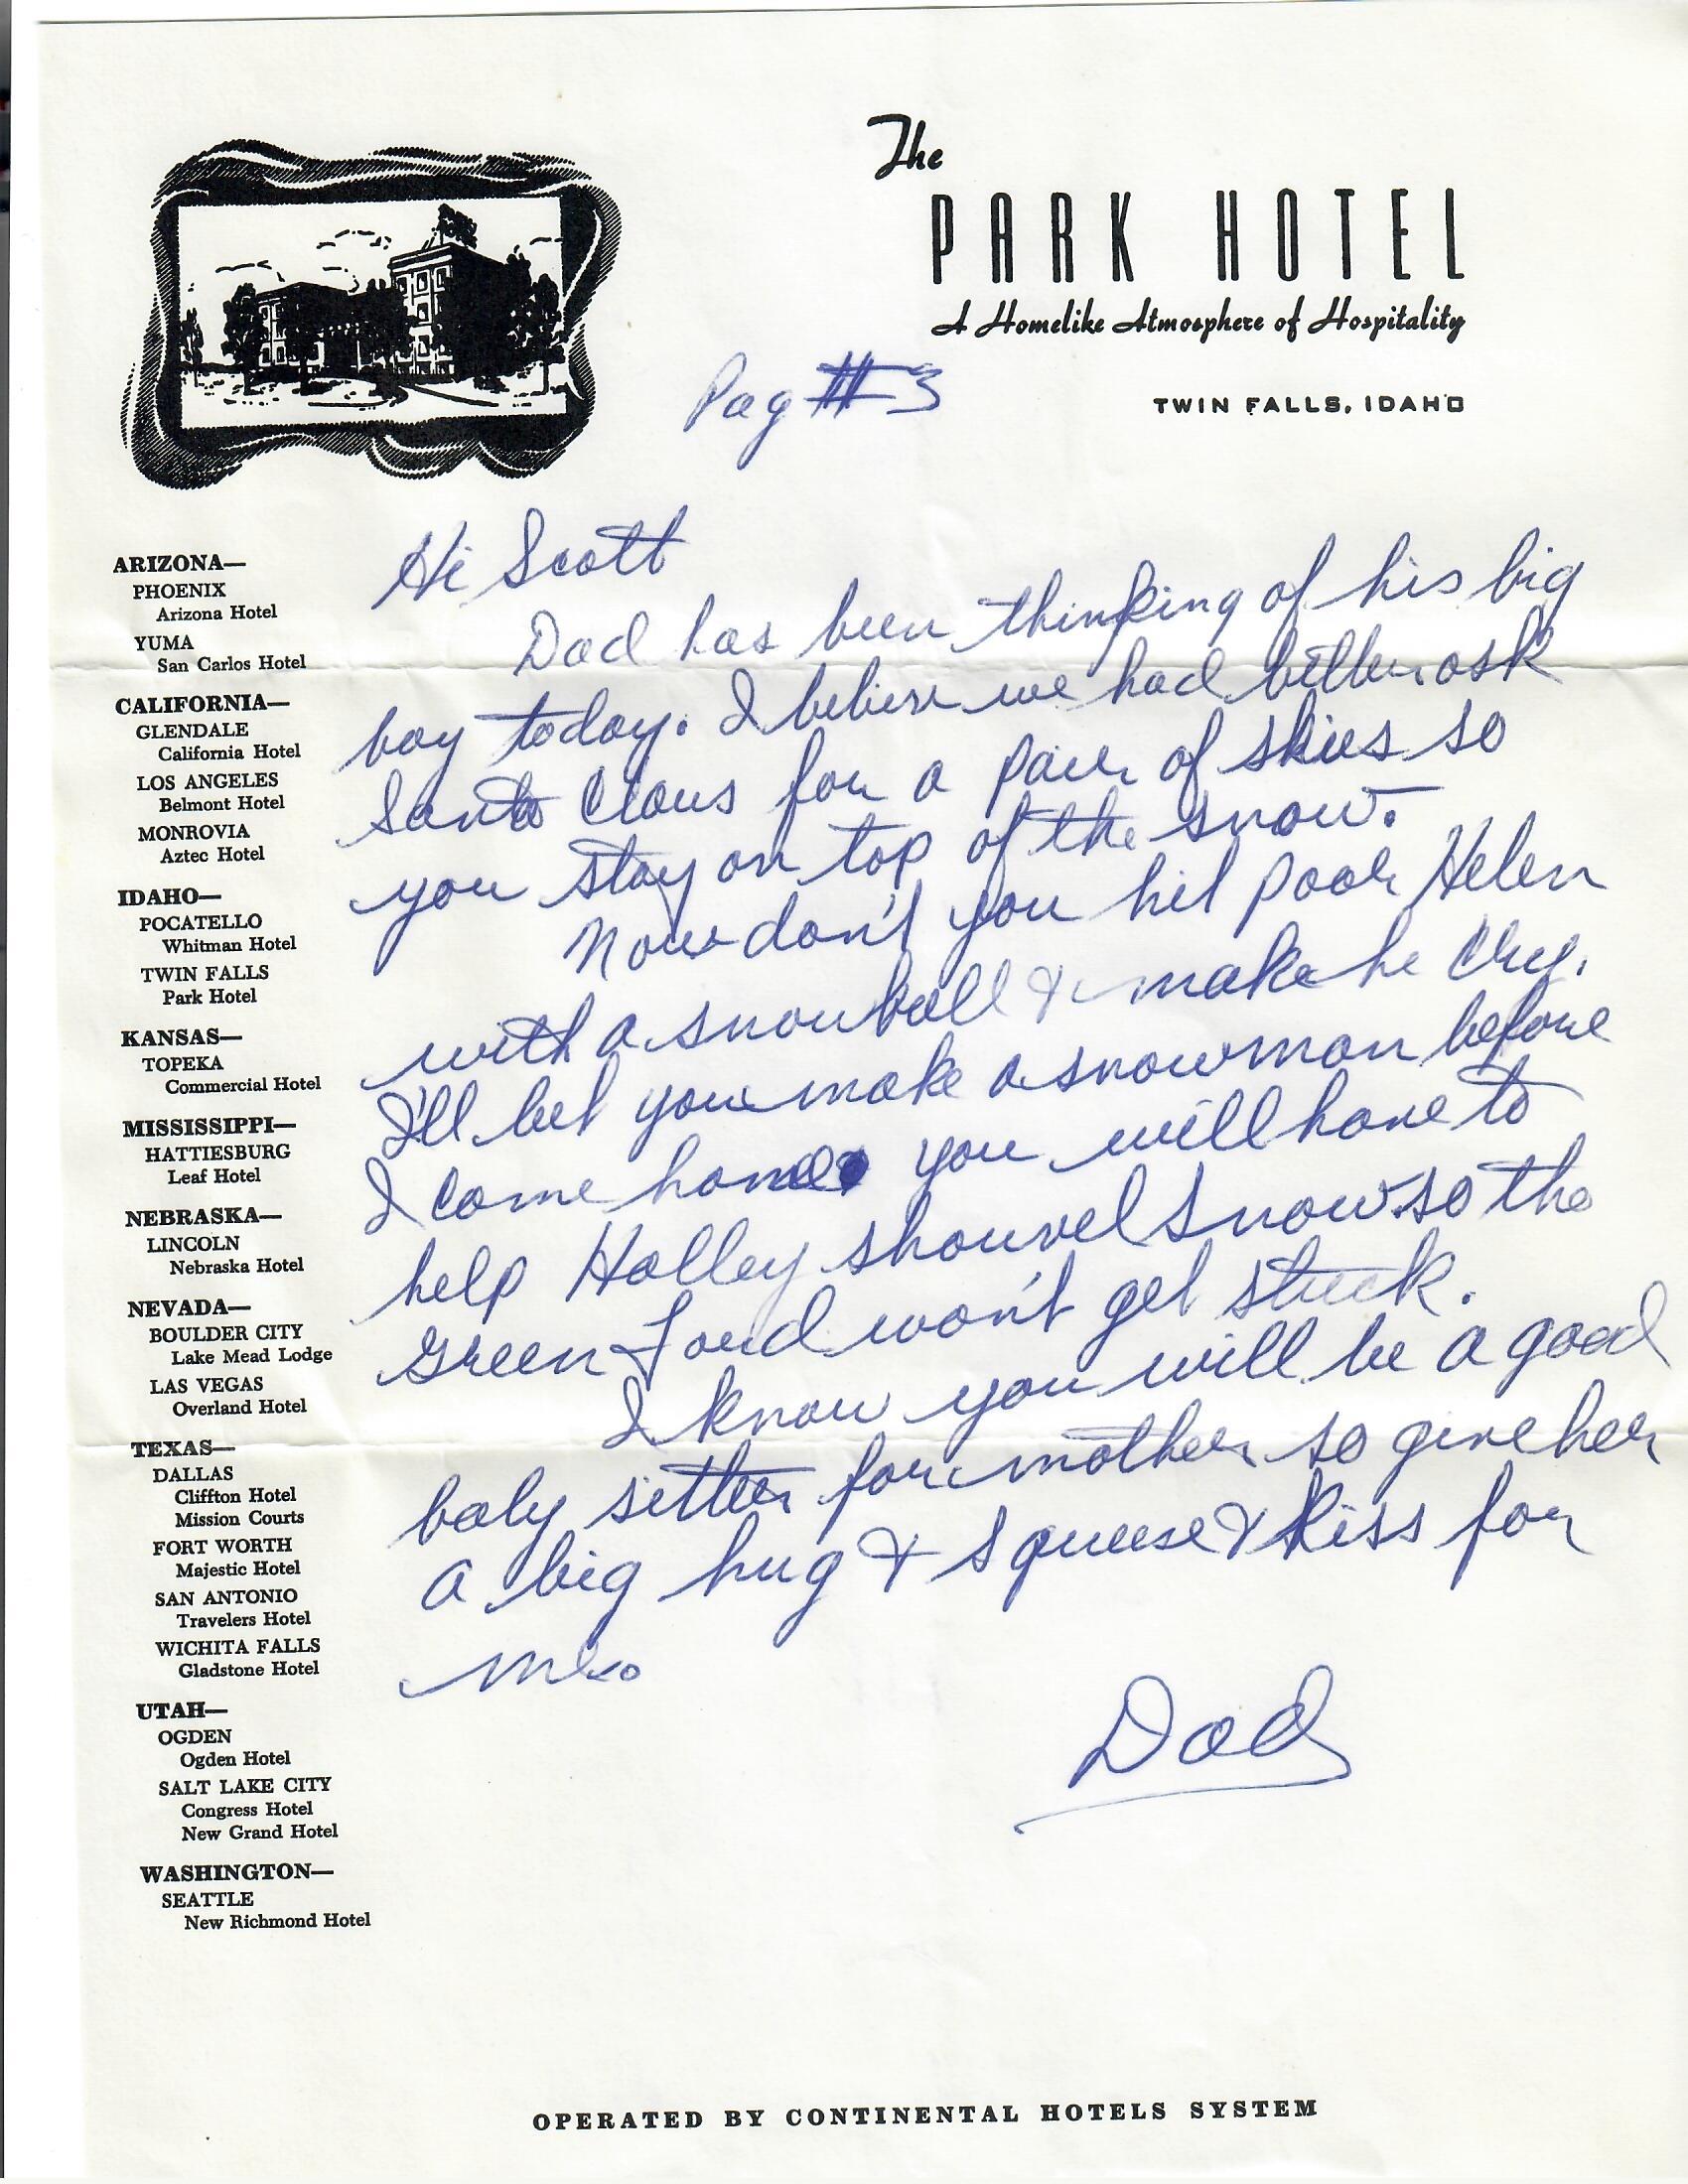 The
PARK HOTEL
A Homelike Atmosphere of Hospitality
TWIN FALLS, IDAHO
Pag #3
ARIZONA—
PHOENIX
Arizona Hotel
YUMA
San Carlos Hotel
CALIFORNIA—
GLENDALE
California Hotel
LOS ANGELES
Belmont Hotel
MONROVIA
Aztec Hotel
IDAHO—
POCATELLO
Whitman Hotel
TWIN FALLS
Park Hotel
KANSAS—
TOPEKA
Commercial Hotel
MISSISSIPPI—
HATTIESBURG
Leaf Hotel
NEBRASKA—
LINCOLN
Nebraska Hotel
NEVADA—
BOULDER CITY
Lake Mead Lodge
LAS VEGAS
Overland Hotel
TEXAS—
DALLAS
Cliffton Hotel
Mission Courts
FORT WORTH
Majestic Hotel
SAN ANTONIO
Travelers Hotel
WICHITA FALLS
Gladstone Hotel
UTAH—
OGDEN
Ogden Hotel
SALT LAKE CITY
Congress Hotel
New Grand Hotel
WASHINGTON—
SEATTLE
New Richmond Hotel
Hi Scott
Dad has been thinking of his big
boy today. I believe we had better ask
Santa Claus for a pair of skies so
you stay on top of the snow.
Now don't you hit poor Helen
with a snowball & make he cry.
I'll bet you make a snowman before
I come home you will have to
help Holley shouvel snow so the
green Ford won't get stuck.
I know you will be a good
baby sitter for mother so give her
a big hug & squeese & kiss for
me.
Dad
OPERATED BY CONTINENTAL HOTELS SYSTEM